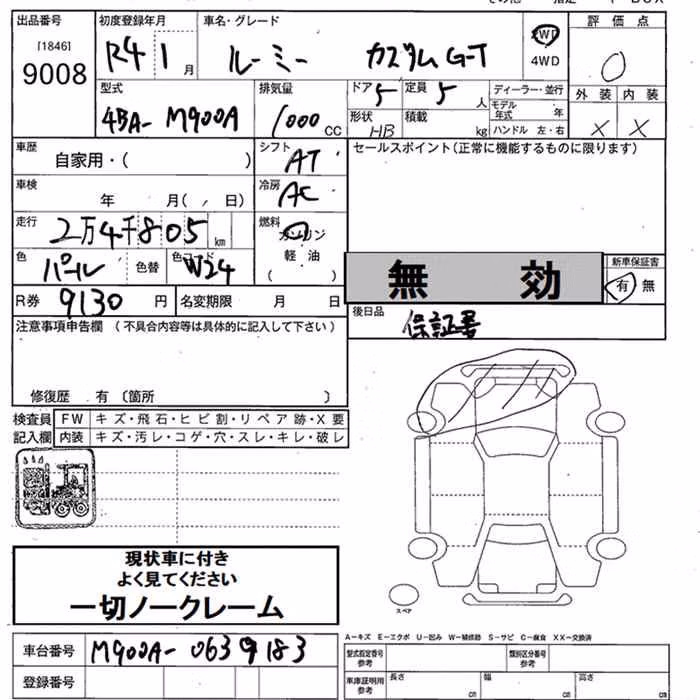 出品番号 初度登録年月 車名・グレード 評価点
[1846]
9008 R4 1月 ルーミー カスタムG-T 2WD 4WD 0
型式 排気量 ドア 定員 ディーラー・並行 外装 内装
4BA-M900A 1000 CC 5 5人 モデル年式 年 X X
形状 HB 積載 kg ハンドル 左・右
車歴 シフト セールスポイント(正常に機能するものに限ります)
自家用・( ) AT
車検 年 月( , 日) 冷房 AC
走行 2万4千805km 燃料 ガソリン
軽油
( )
色 パール 色替 色コード W24
無効 新車保証書
有 無
R券 9130円 名変期限 月 日 後日品
保証書
注意事項申告欄 (不具合内容等は具体的に記入して下さい)
修復歴 有 〔箇所 〕
検査員 FW キズ・飛石・ヒビ割・リペア跡・X要
記入欄 内装 キズ・汚レ・コゲ・穴・スレ・キレ・破レ
現状車に付き
よく見てください
一切ノークレーム
スペア
A-キズ E-エクボ U-凹み W-補修跡 S-サビ C-腐食 XX-交換済
車台番号 M900A-0639183
型式指定番号 参考 類別区分番号 参考
登録番号
車庫証明用 参考 長さ cm 幅 cm 高さ cm